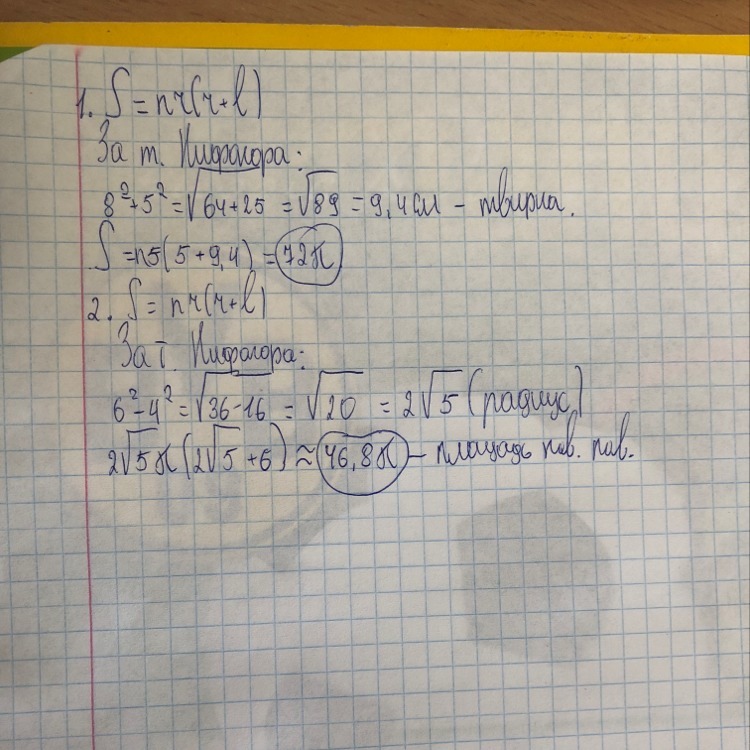 1. S = πr(r+l)
За т. Пифагора:
8²+5² = √64+25 = √89 = 9,4 см – твирна.
S = π5(5+9,4) = 72π
2. S = πr(r+l)
За т. Пифагора:
6²-4² = √36-16 = √20 = 2√5 (радиус)
2√5π(2√5+6) ≈ 46,8π – площадь пов. пов.